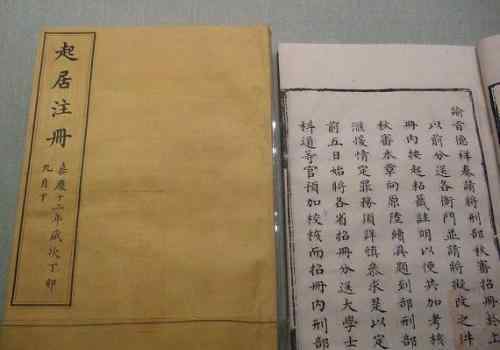 起居注冊
嘉慶十二年歲次丁卯
九月
諭旨德祥奏請將刑部秋審招冊於上
以前分送各衙門並請將擬改之件
冊內按起粘籤註明以便共加考核
秋審本章向原陸續具題到部刑部
情定罪務須詳慎求是以定
前五日始將各省招冊分送大學士
科道等官預加校核而招冊內刑部